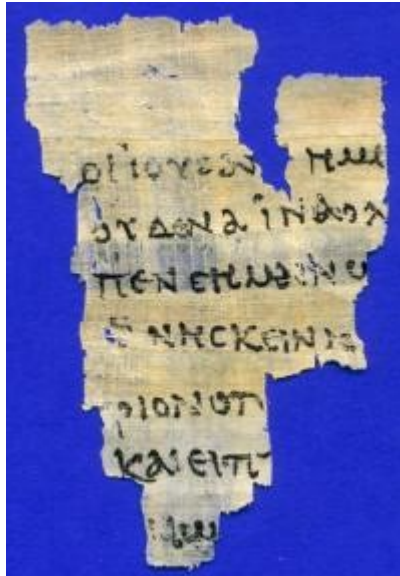 ΟΙ ΙΟΥΔΑΙ ΗΜΙ
ΟΥΔΕΝΑ ΪΝΑ Ο Λ
ΠΕΝ ϹΗΜΑΙΝΩ
ΘΝΗϹΚΕΙΝ ΙϹ
ΡΙΟΝ Ο Π
ΚΑΙ ΕΙΠ